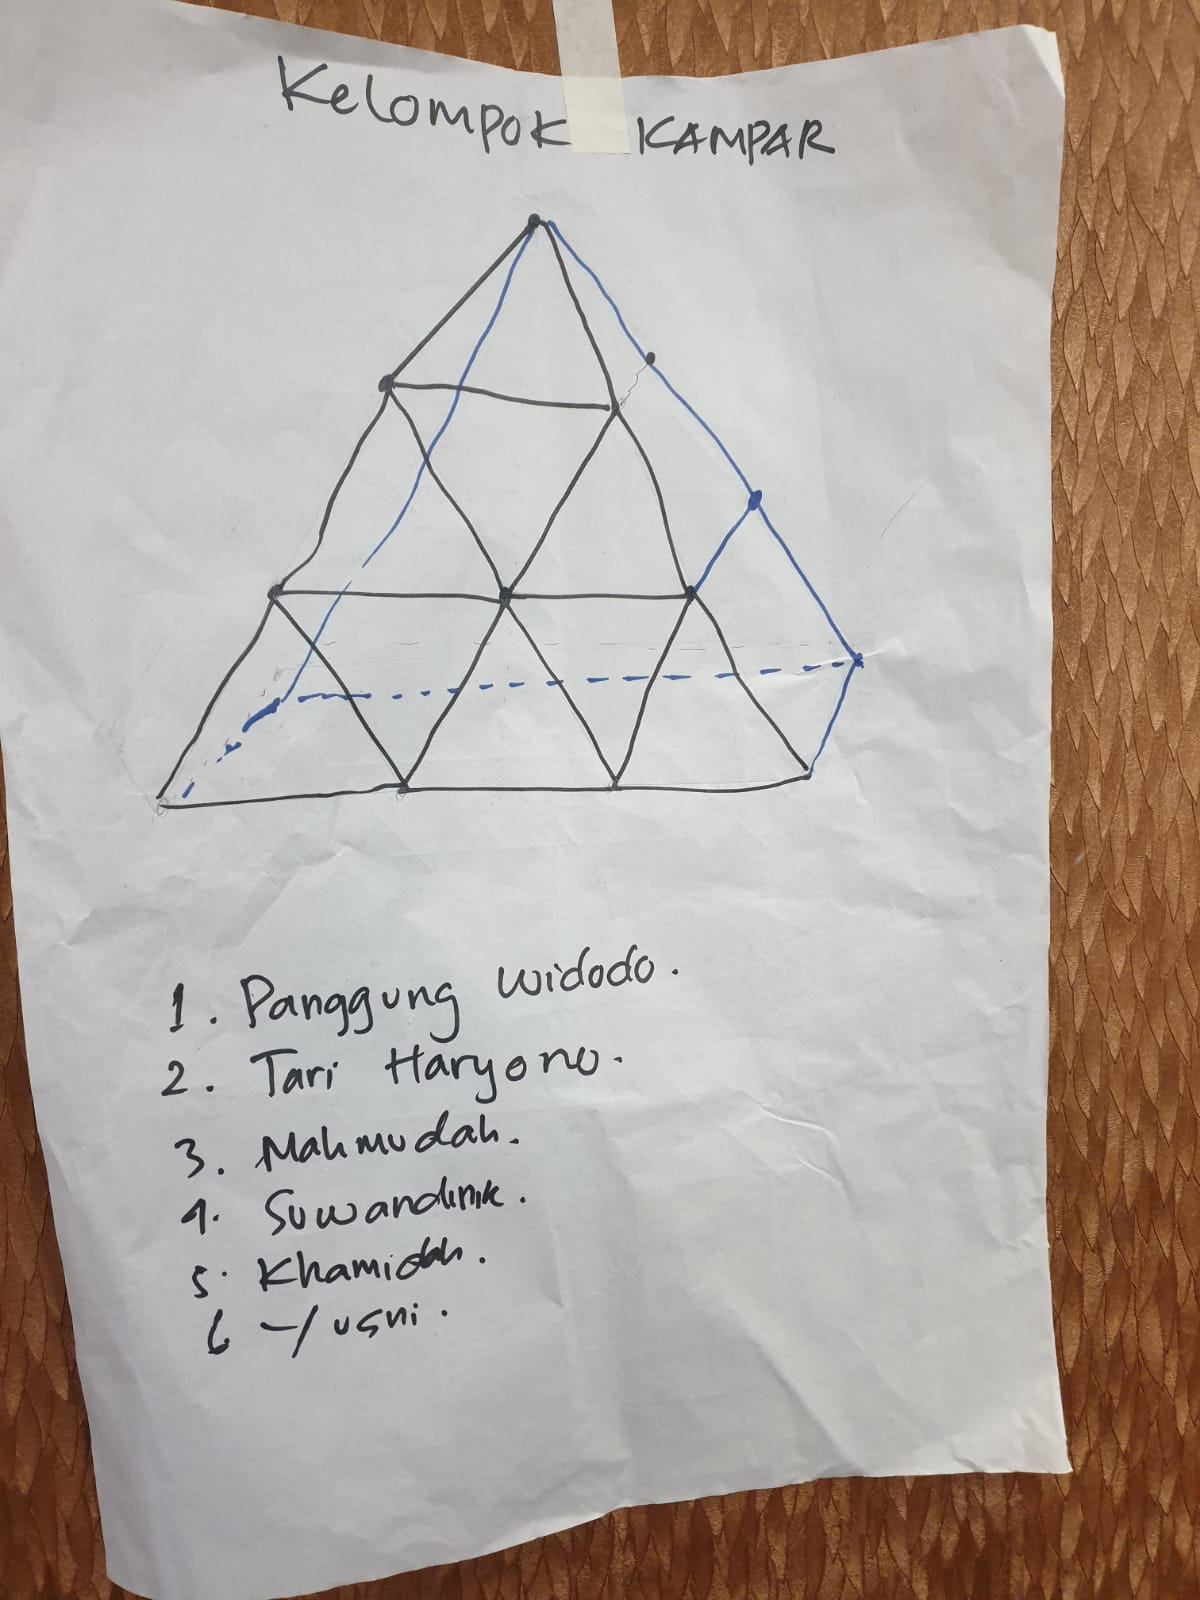 Kelompok KAMPAR
1. Panggung Widodo.
2. Tari Haryono.
3. Mahmudah.
4. Suwandinik.
5. Khamidah.
6 Yusni.